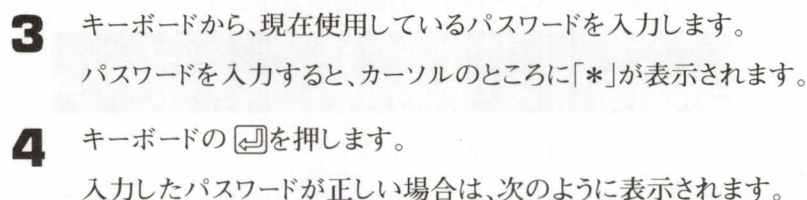 3 キーボードから、現在使用しているパスワードを入力します。
パスワードを入力すると、カーソルのところに「＊」が表示されます。
4 キーボードの ⏎を押します。
入力したパスワードが正しい場合は、次のように表示されます。